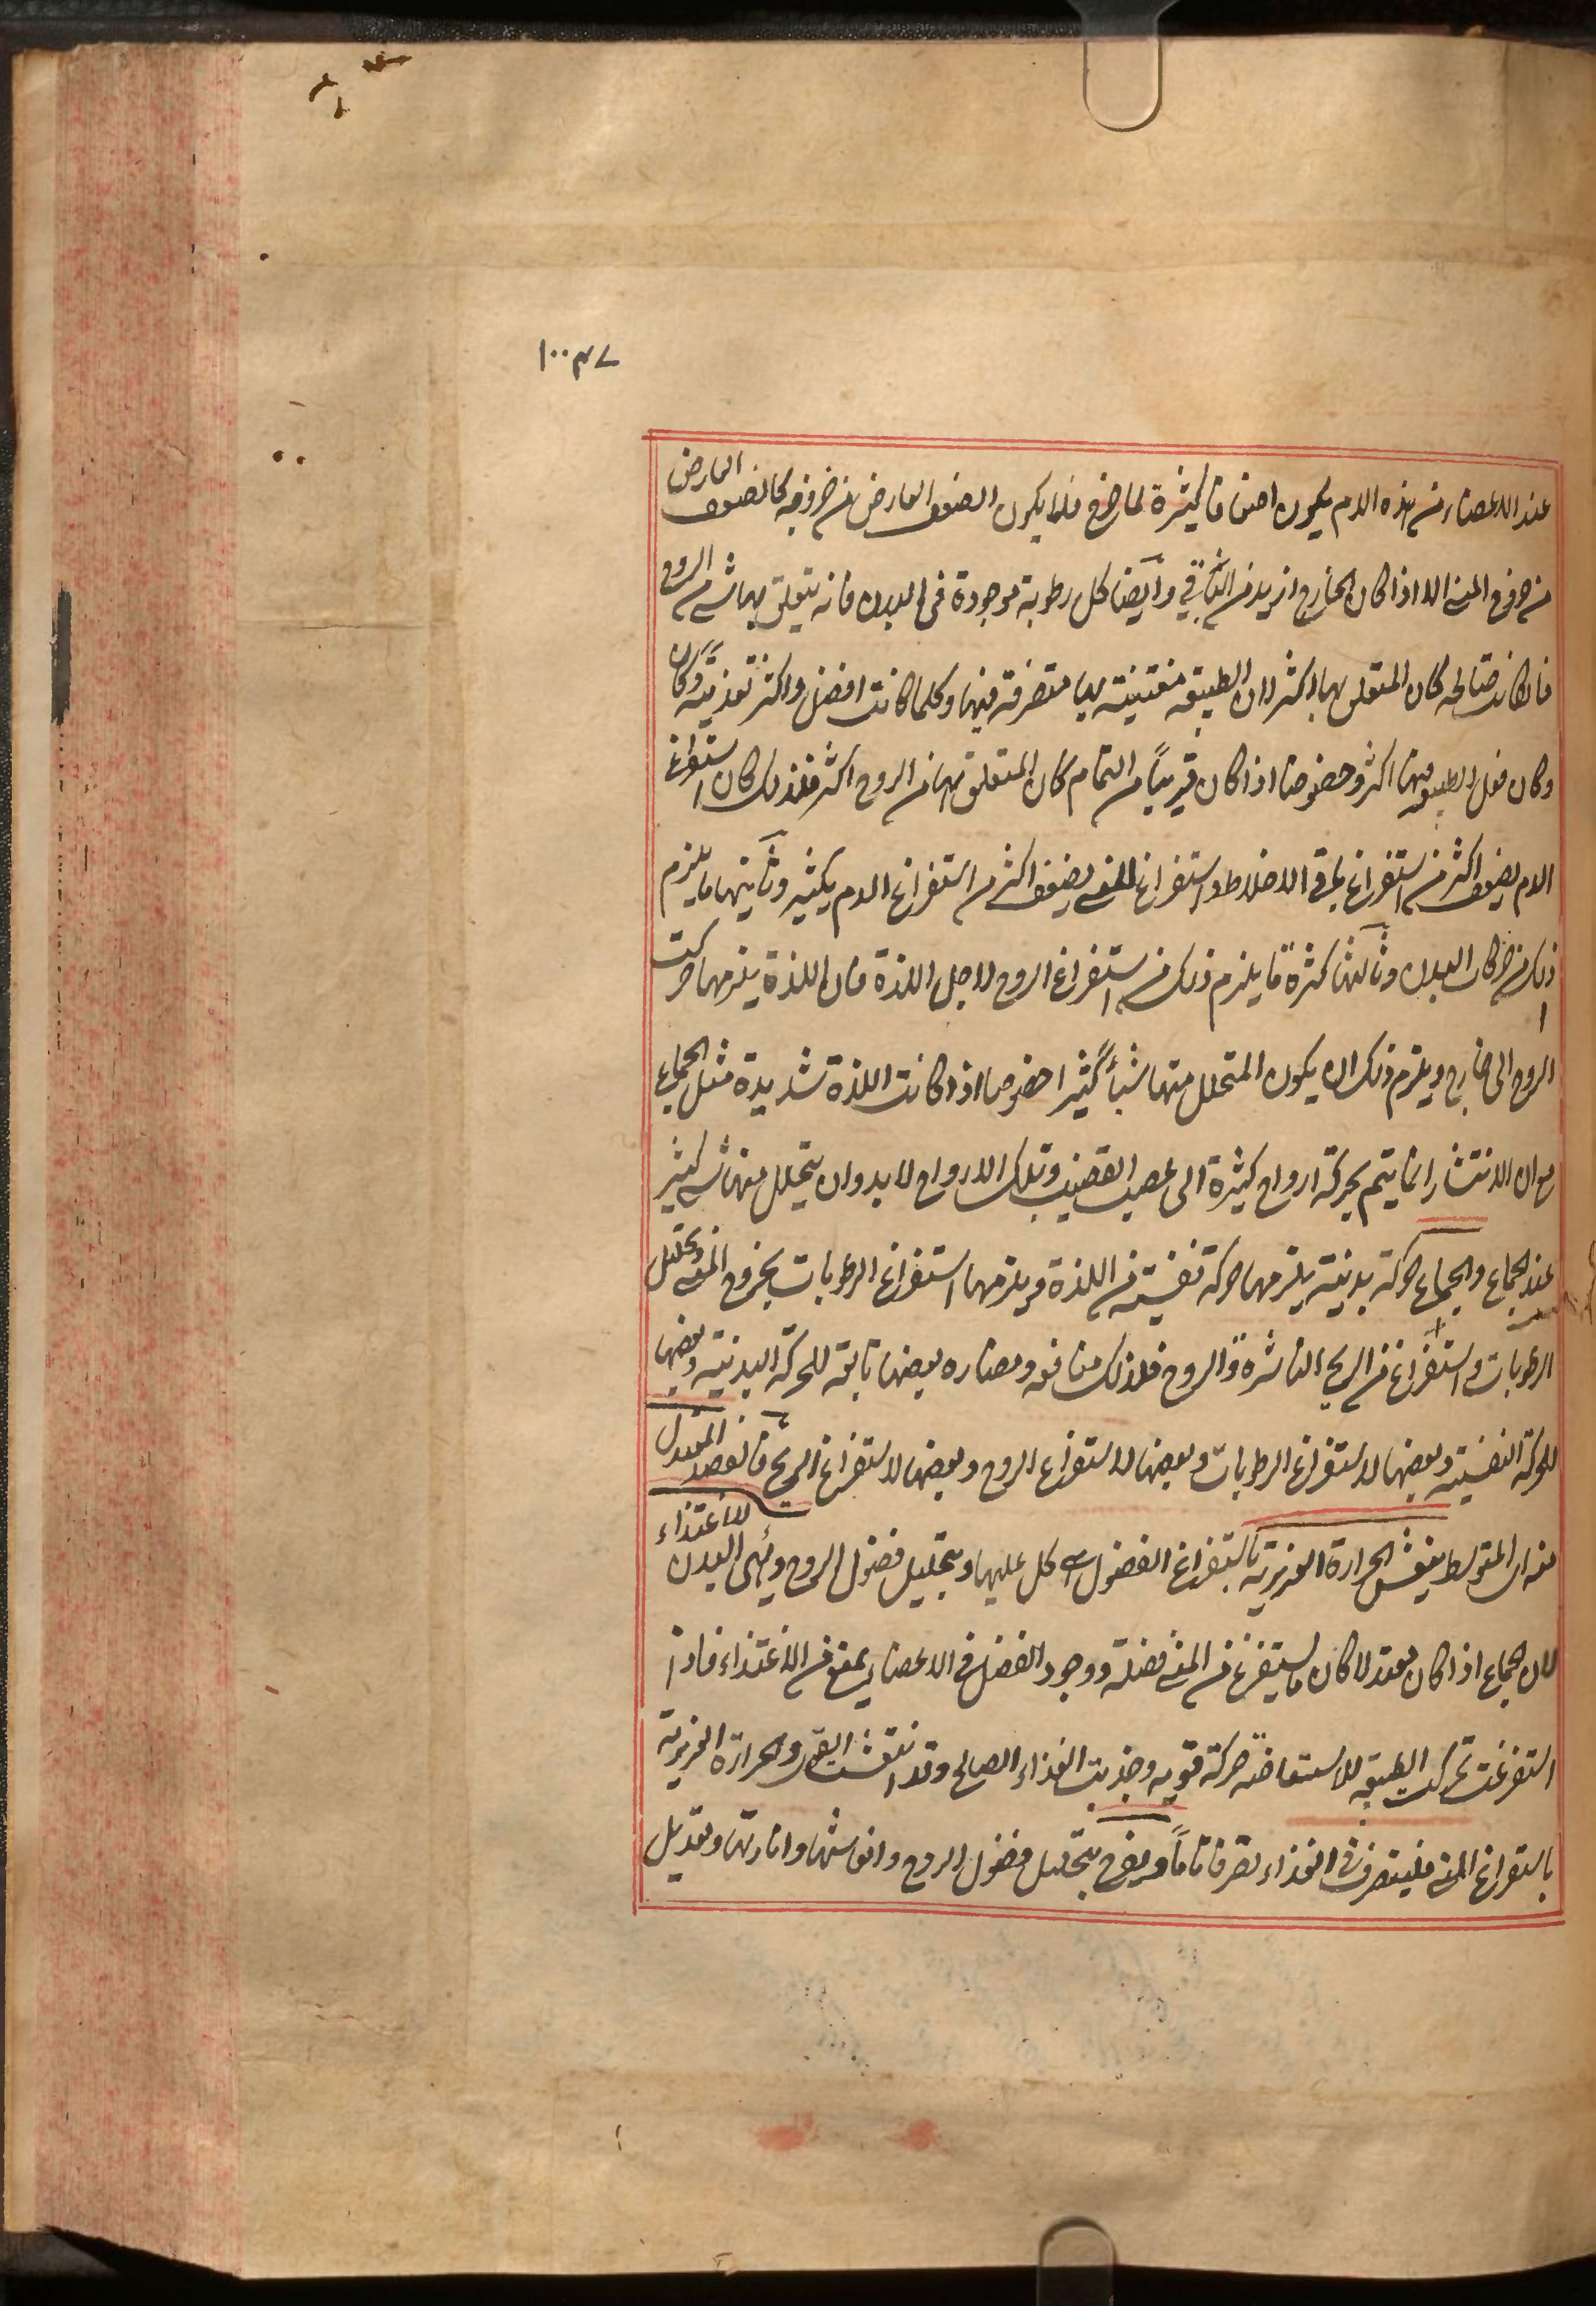 ١٠٠٣٧
عند الاعضاء من هذه الدم يكون اضعافا كثيرة لما خرج فلا يكون الضعف العارض من خروجه كالضعف العارض
من خروج المنى الا اذا كان الخارج ازيد من الباقي وايضا كل رطوبة موجودة فى البدن فانه يتعلق بها شئ من الروح
فان كانت صالحه كان المتعلق بها اكثر لان الطبيعة معتنية بها متصرفة فيها وكلما كانت افضل واكثر تغذية وكان
وكان فعل الطبيعه فيها اكثر وخصوصا اذا كان قريباً من التمام كان المتعلق بها من الروح اكثر فلذلك كان استفراغ
الدم يضعف اكثر من استفراغ باقى الاخلاط واستفراغ المنى يضعف اكثر من استفراغ الدم بكثير وثانيها ما يلزم
ذلك من حركات البدن وثالثها كثرة ما يلزم ذلك من استفراغ الروح لاجل اللذة فان اللذة يلزمها حركت
الروح الى خارج ويلزم ذلك ان يكون المتحلل منها شيأ كثيرا خصوصا اذا كانت اللذة شديدة مثل الجماع
مع ان الانتشار انما يتم بحركة ارواح كثيرة الى عصب القضيب وتلك الارواح لا بد وان يتحلل منها شئ كثير
عند الجماع والجماع حركة بدنية يلزمها حركة نفسية من اللذة ويلزمها استفراغ الرطوبات بخروج المنى وتحليل
الرطوبات واستفراغ من الريح الناشرة والروح فلذلك منافعه ومضاره بعضها تابعة للحركة البدنية وبعضها
للحركة النفسية وبعضها لاستفراغ الرطوبات وبعضها لاستفراغ الروح وبعضها لاستفراغ الريح فالقصد المعتدل
منه ان المتوسط ينعش الحرارة الغريزية باستفراغ الفضول كل عليها وبتحليل فضول الروح ويهيئ البدن للاغتذاء
لان الجماع اذا كان معتدلا كان ما يستفرغ من المنى فضلة ووجود الفضل فى الاعضاء يمنع من الاغتذاء فاذا
استفرغت تحركت الطبيعه للاستعاضة حركة قويه وجذبت الغذاء الصالح وقد انتعشت القوى والحرارة الغريزية
باستفراغ المنى فيتصرف فى الغذاء تصرفا تاماً ويفرح بتحليل فضول الروح وانعاشها وانارتها وتعديل